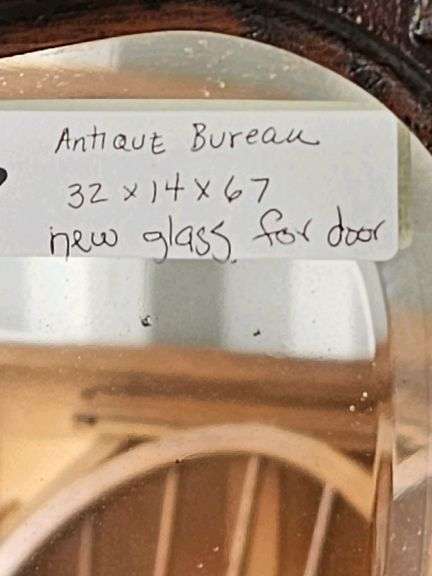 Antique Bureau
32 x 14 x 67
new glass for door